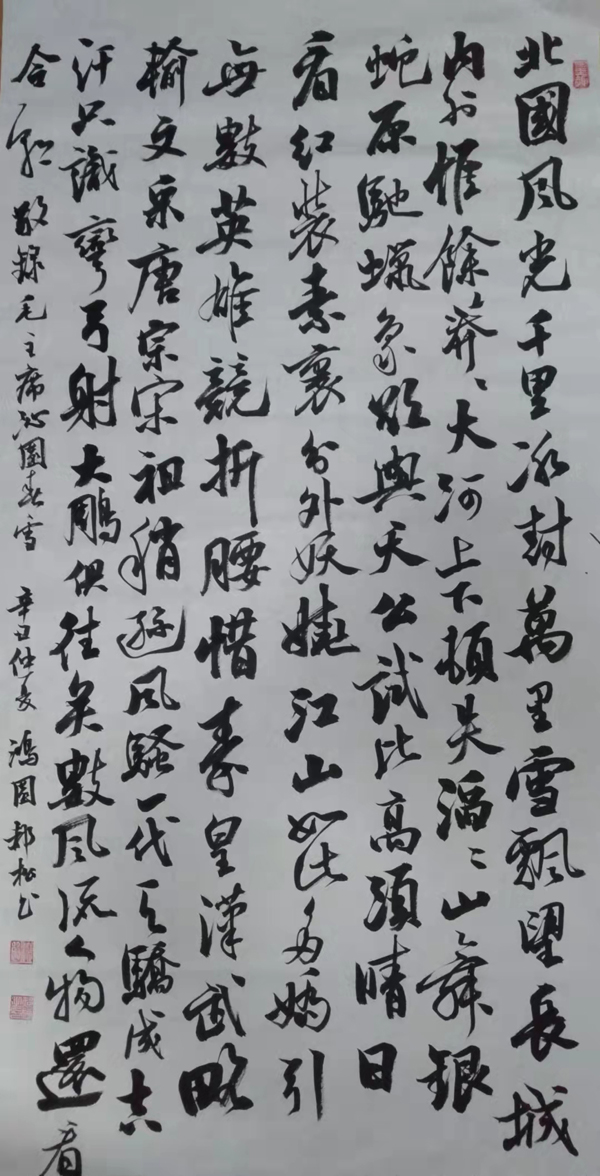 北國風光千里冰封萬里雪飄望長城
内外惟餘莽〻大河上下頓失滔〻山舞銀
蛇原馳蠟象欲與天公試比高須晴日
看紅裝素裹分外妖嬈江山如此多嬌引
無數英雄競折腰惜秦皇漢武略
輸文采唐宗宋祖稍遜風騷一代天驕成吉
汗只識彎弓射大鵰俱往矣數風流人物還看
今朝 敬錄毛主席沁園春雪 辛丑仲夏